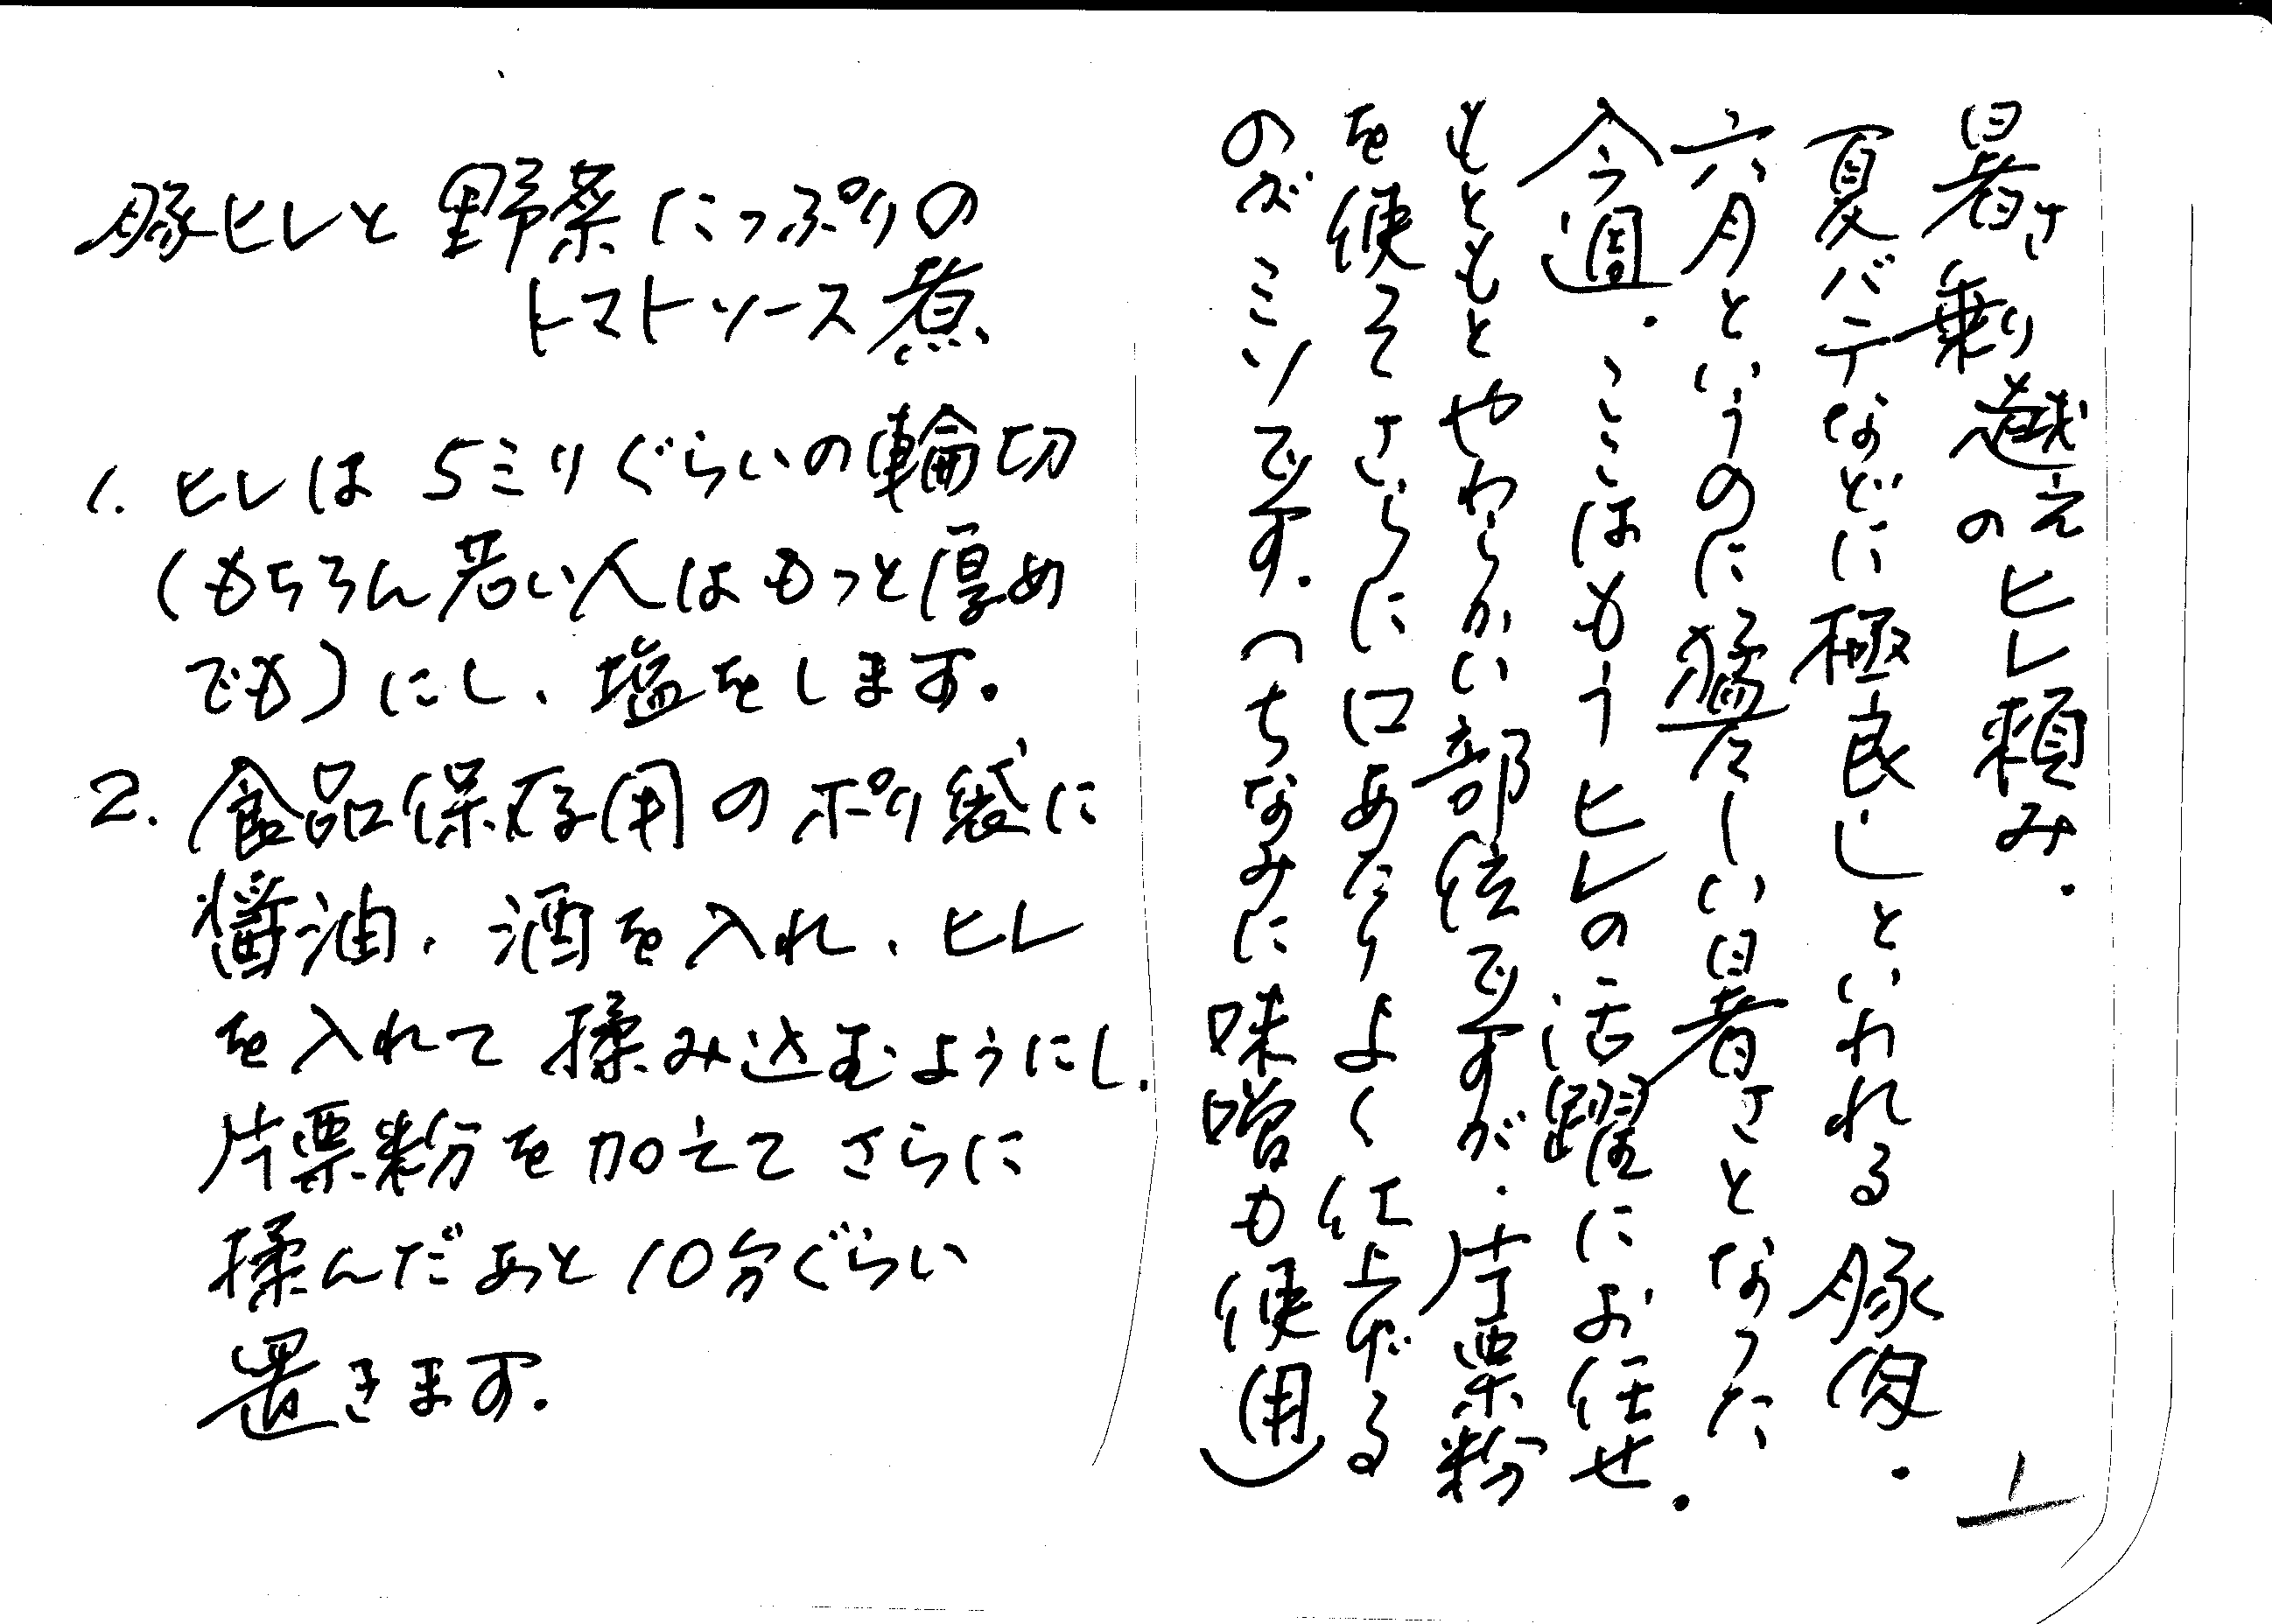 暑さ乗り越えの ヒレ頼み.
夏バテなどに極良しといわれる豚肉.
六月というのに猛々しい暑さとなった
今週. ここはもうヒレの活躍にお任せ.
もともとやわらかい部位ですが. 片栗粉
を使てさらに口あたりよく仕上げる
のがミソです. (ちなみに味噌も使用)
1
豚ヒレと野菜たっぷりの
トマトソース煮
1. ヒレは 5ミリぐらいの輪切
(もちろん若い人はもっと厚め
でも)にし、塩をします.
2. 食品保存用のポリ袋に
醤油、酒を入れ、ヒレ
を入れて揉み込むようにし.
片栗粉を加えてさらに
揉んだあと10分ぐらい
置きます.